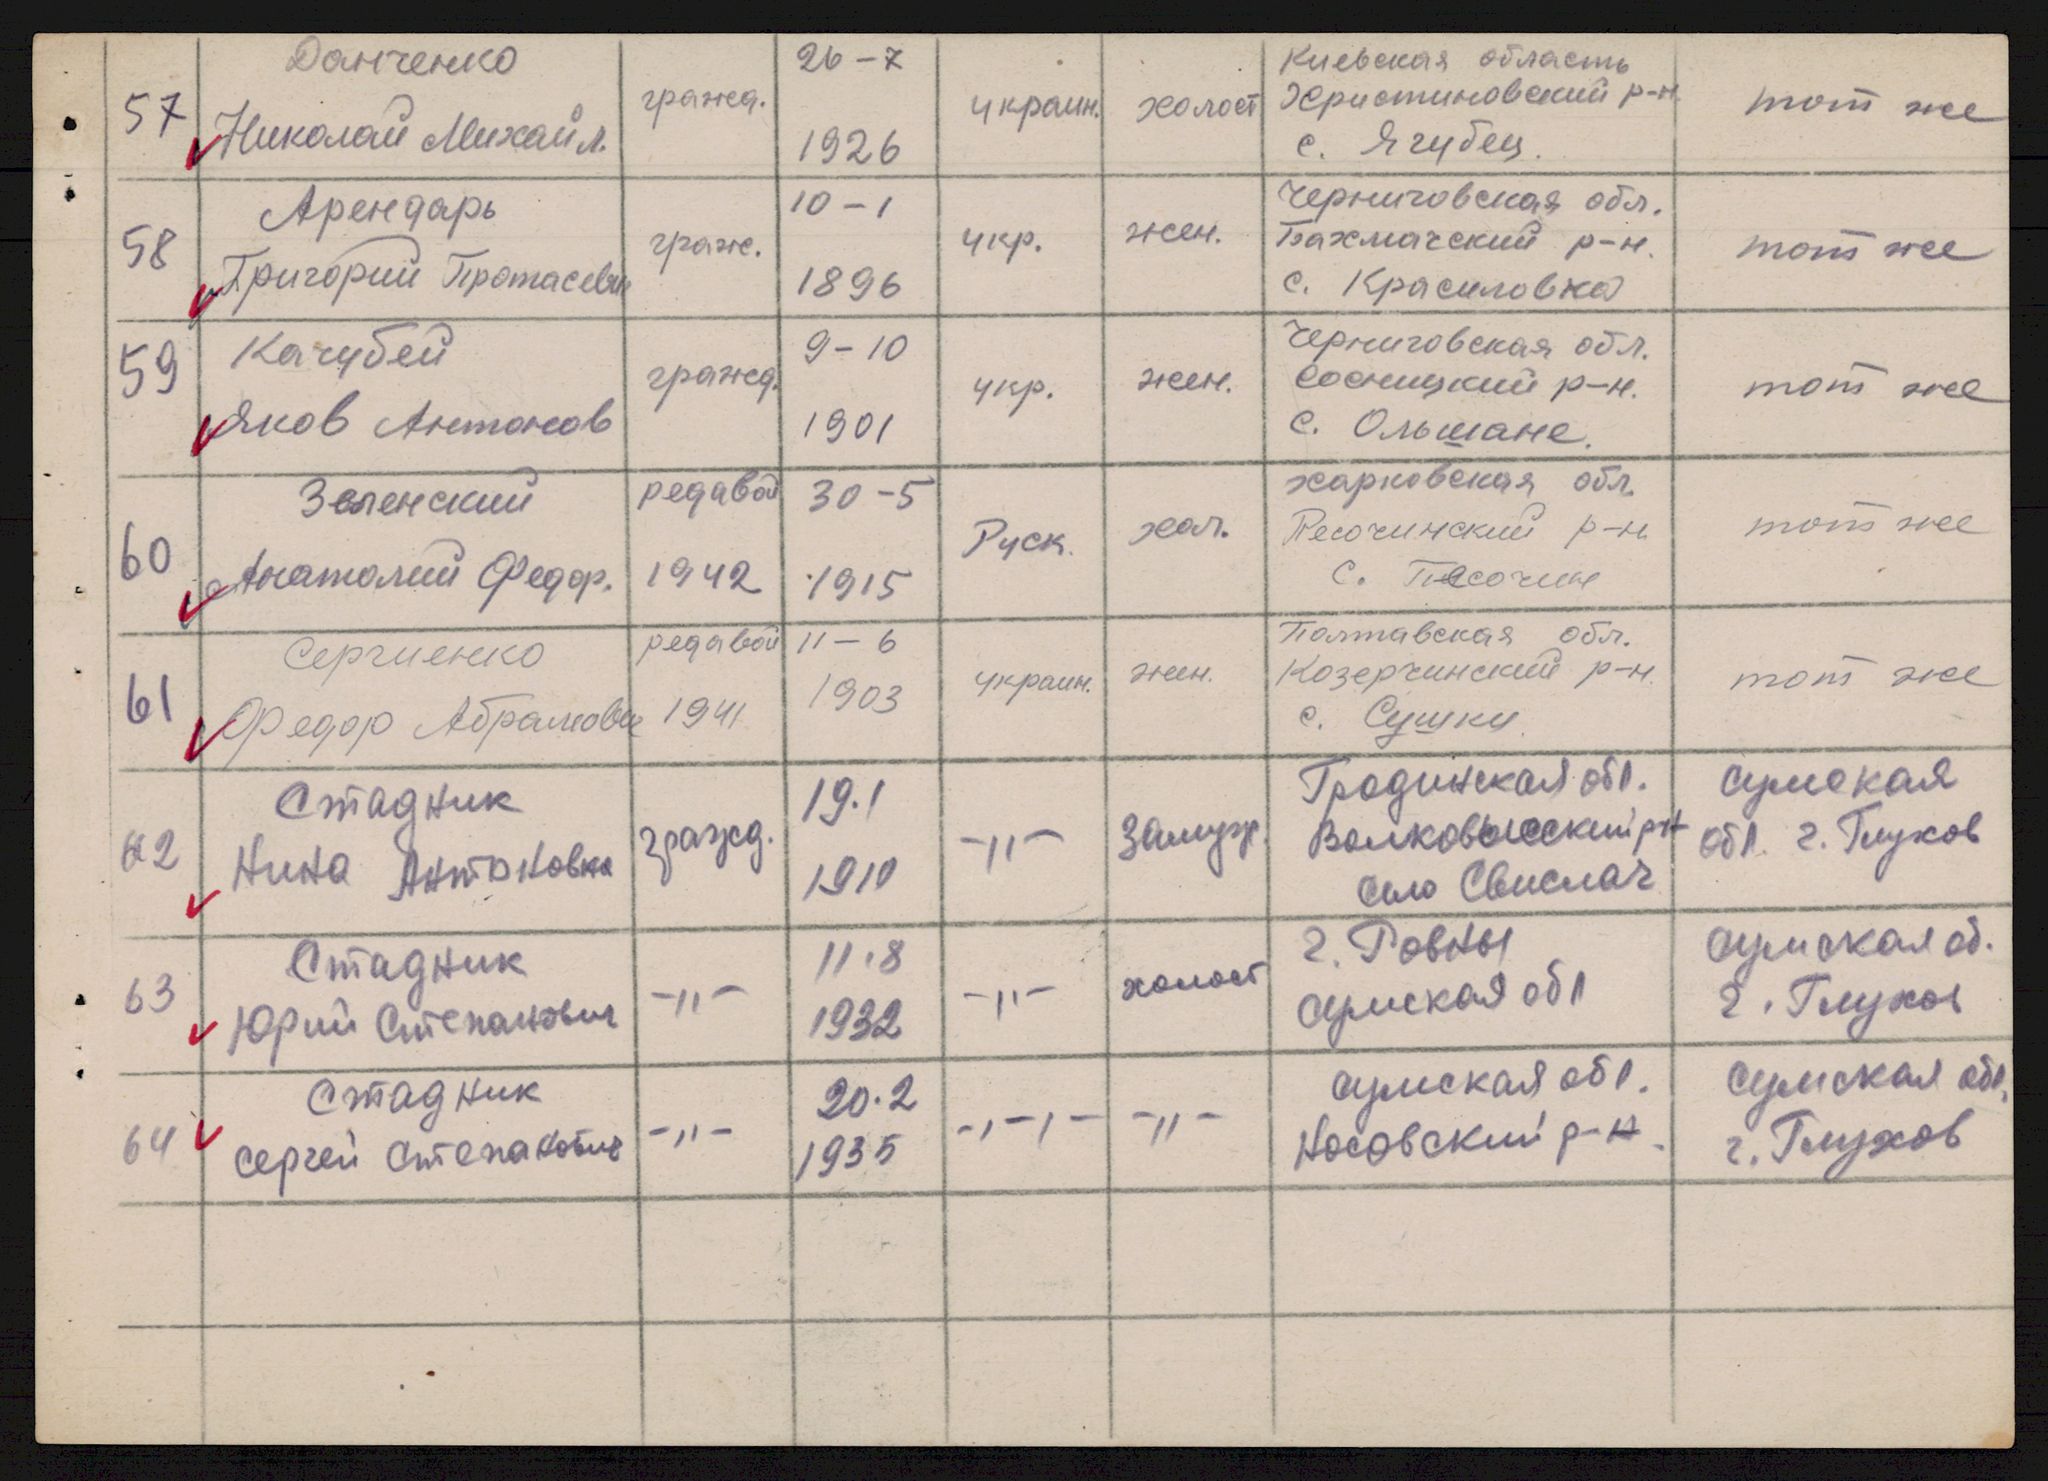 57
Данченко
Николай Михайл.
гражд.
26-7
1926
украин.
холост
Киевская область
Христиновский р-н.
с. Ягубец.
тот же
58
Арендарь
Григорий Протасевич
гражд.
10-1
1896
укр.
жен.
Черниговская обл.
Бахмачский р-н.
с. Красиловка
тот же
59
Качубей
Яков Антонов
гражд.
9-10
1901
укр.
жен.
Черниговская обл.
Сосницкий р-н.
с. Ольшане.
тот же
60
Зеленский
Анатолий Федор.
редавой
1942
30-5
1915
Руск.
хол.
Харковская обл.
Песочинский р-н
с. Песочин
тот же
61
Сергиенко
Федор Абрамович
редавой
1941
11-6
1903
украин.
жен.
Полтавская обл.
Козерчинский р-н.
с. Сушки
тот же
62
Стадник
Нина Антоновна
гражд.
19.1
1910
-"-
Замуж.
Гродинская обл.
Волковысский р-н
село Свислач
Сумская
обл. г. Глухов
63
Стадник
Юрий Степанович
-"-
11.8
1932
-"-
холост
г. Ровны
Сумская обл
Сумская об.
г. Глухов
64
Стадник
Сергей Степанович
-"-
20.2
1935
-"-
-"-
Сумская обл.
Носовский р-н.
Сумская обл.
г. Глухов